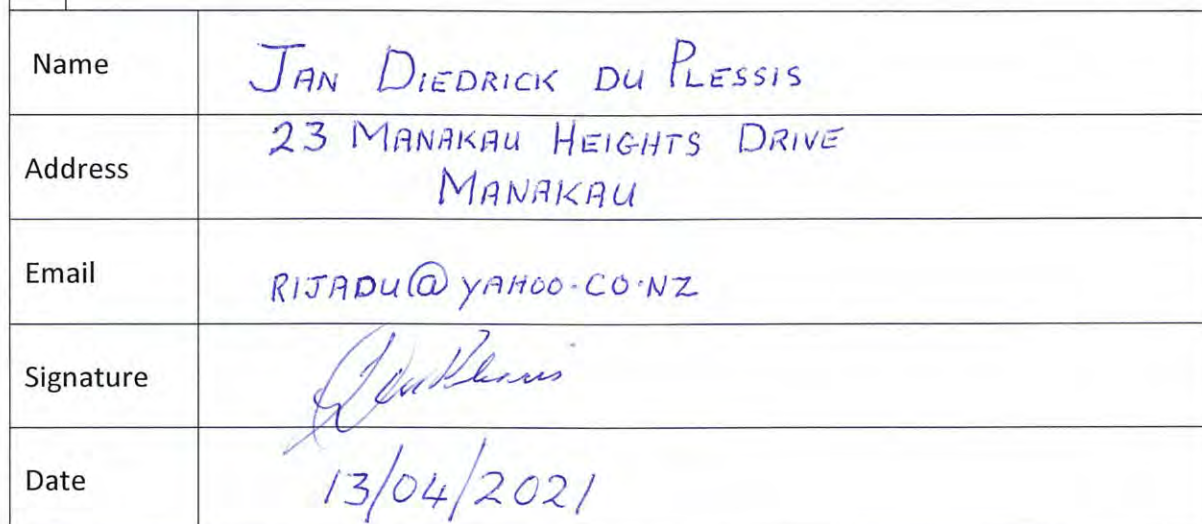 Name JAN DIEDRICK DU PLESSIS
Address 23 MANAKAU HEIGHTS DRIVE
MANAKAU
Email RIJADU@YAHOO.CO.NZ
Signature J DuPlessis
Date 13/04/2021